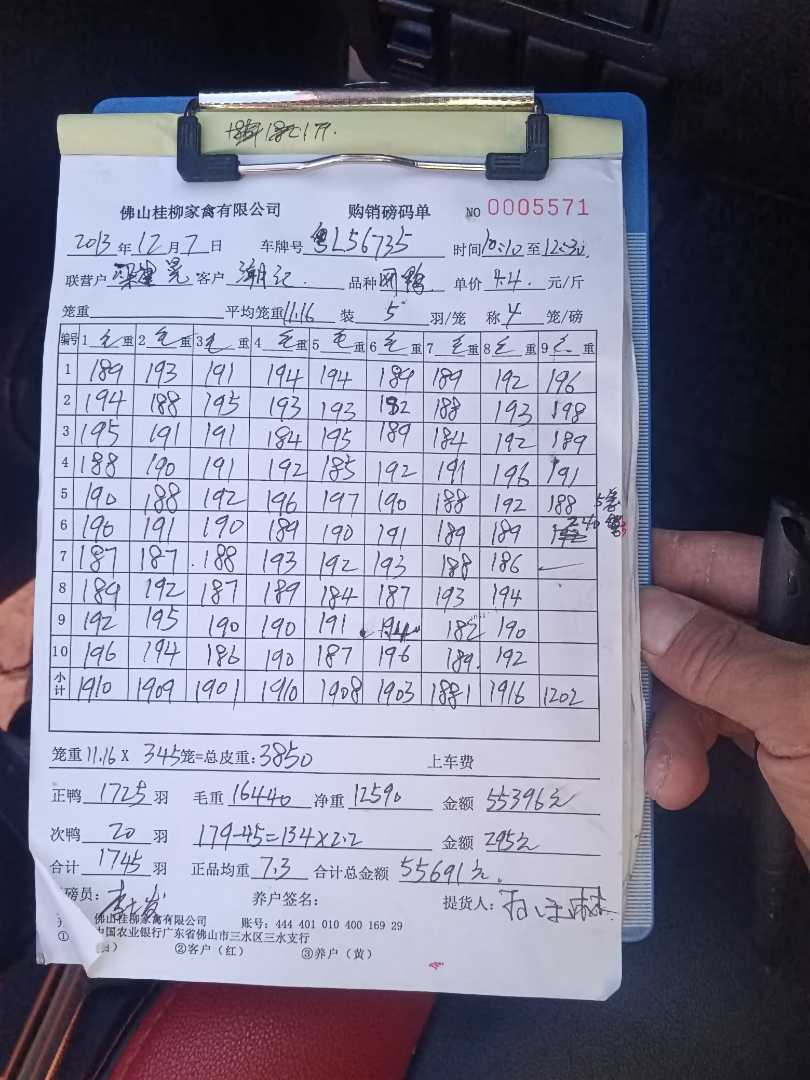 佛山桂柳家禽有限公司 购销磅码单 NO 0005571
2013年12月7日 车牌号 粤L56735 时间10:10至12:30
联营户 客户 潮记 品种 单价 4.4 元/斤
笼重 平均笼重11.16 装 5 羽/笼 称 4 笼/磅
编号 1 毛重 2 毛重 3 毛重 4 毛重 5 毛重 6 毛重 7 毛重 8 毛重 9 毛重
1 189 193 191 194 194 189 189 192 196
2 194 188 195 193 193 182 188 193 198
3 195 191 191 184 195 189 184 192 189
4 188 190 191 192 185 192 191 196 191
5 190 188 192 196 197 190 188 192 188 5笼
6 190 191 190 189 190 191 189 189 240
7 187 187 188 193 192 193 188 186
8 189 192 187 189 184 187 193 194
9 192 195 190 190 191 194 182 190
10 196 194 186 190 187 196 189 192
小计 1910 1909 1901 1910 1908 1903 1881 1916 1202
笼重11.16X 345笼=总皮重:3850 上车费
正鸭 1725 羽 毛重 16440 净重 12590 金额 55396元
次鸭 20 羽 179-45=134×2.2 金额 295元
合计 1745 羽 正品均重 7.3 合计总金额 55691元.
磅员: 养户签名: 提货人:
佛山桂柳家禽有限公司 账号: 444 401 010 400 169 29
中国农业银行广东省佛山市三水区三水支行
① ②客户(红) ③养户(黄)